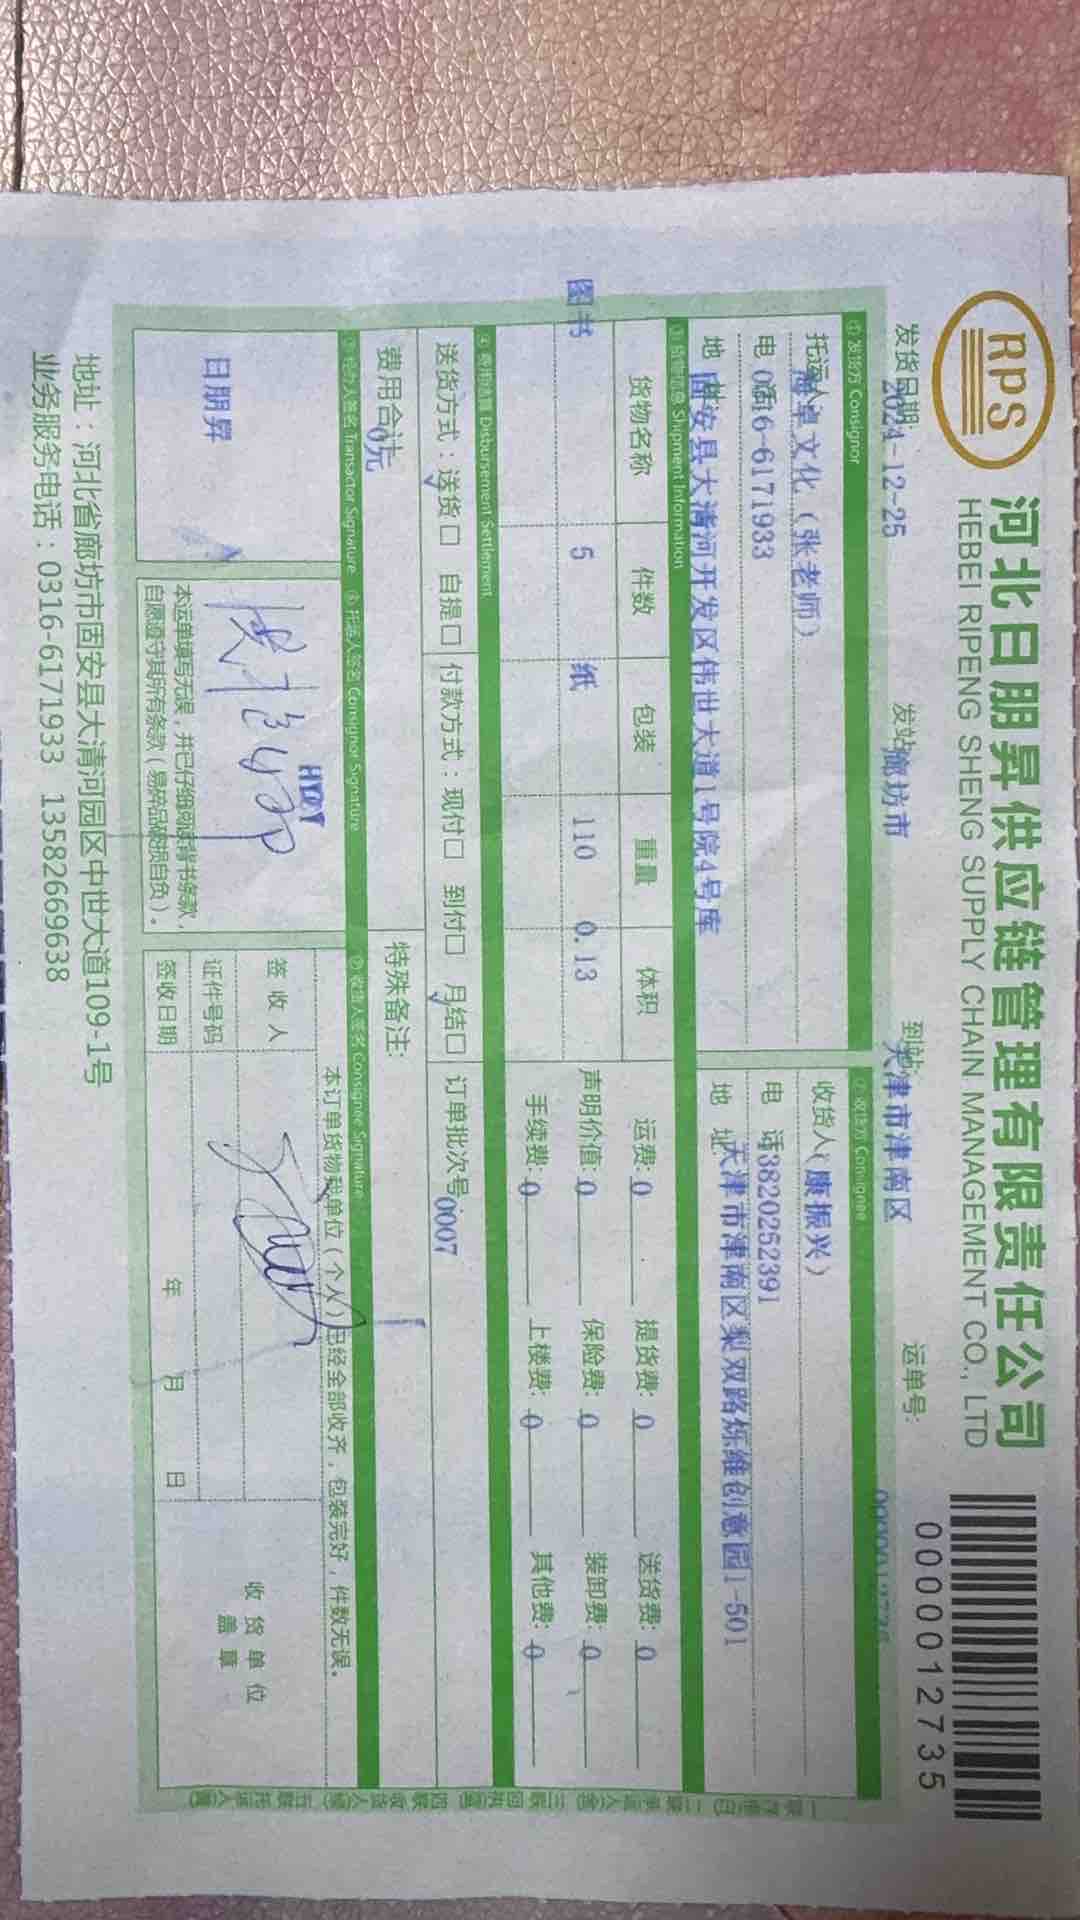 RPS
河北日朋昇供应链管理有限责任公司
HEBEI RIPENG SHENG SUPPLY CHAIN MANAGEMENT CO., LTD
0000012735
发货日期: 2024-12-25 发站: 廊坊市 到站: 天津市津南区 运单号:
① 发货方 Consignor ② 收货方 Consignee
托运人: 卓文化（张老师） 收货人: （康振兴）
电话: 0316-6171933 电 话: 13820252391
地址: 固安县大清河开发区伟世大道1号院4号库 地 址: 天津市津南区梨双路烁维创意园1-501
③ 货物信息 Shipment Information
货物名称 件数 包装 重量 体积 运费: 0 提货费: 0 送货费: 0
图书 5 纸 110 0.13 声明价值: 0 保险费: 0 装卸费: 0
手续费: 0 上楼费: 0 其他费: 0
④ 费用结算 Disbursement Settlement
送货方式：送货☐ 自提☐ 付款方式：现付☐ 到付☐ 月结☐ 订单批次号: 0007
费用合计: 0元 特殊备注:
⑤ 经办人签名 Transactor Signature ⑥ 托运人签名 Consignor Signature ⑦ 收货人签名 Consignee Signature
本订单货物我单位（个人）已经全部收齐，包装完好，件数无误。
日朋昇
签收人
证件号码
签收日期 年 月 日
收货单位
盖章
本运单填写无误，并已仔细阅读背书条款，
自愿遵守其所有条款（易碎品破损自负）。
地址：河北省廊坊市固安县大清河园区中世大道109-1号
业务服务电话：0316-6171933 13582669638